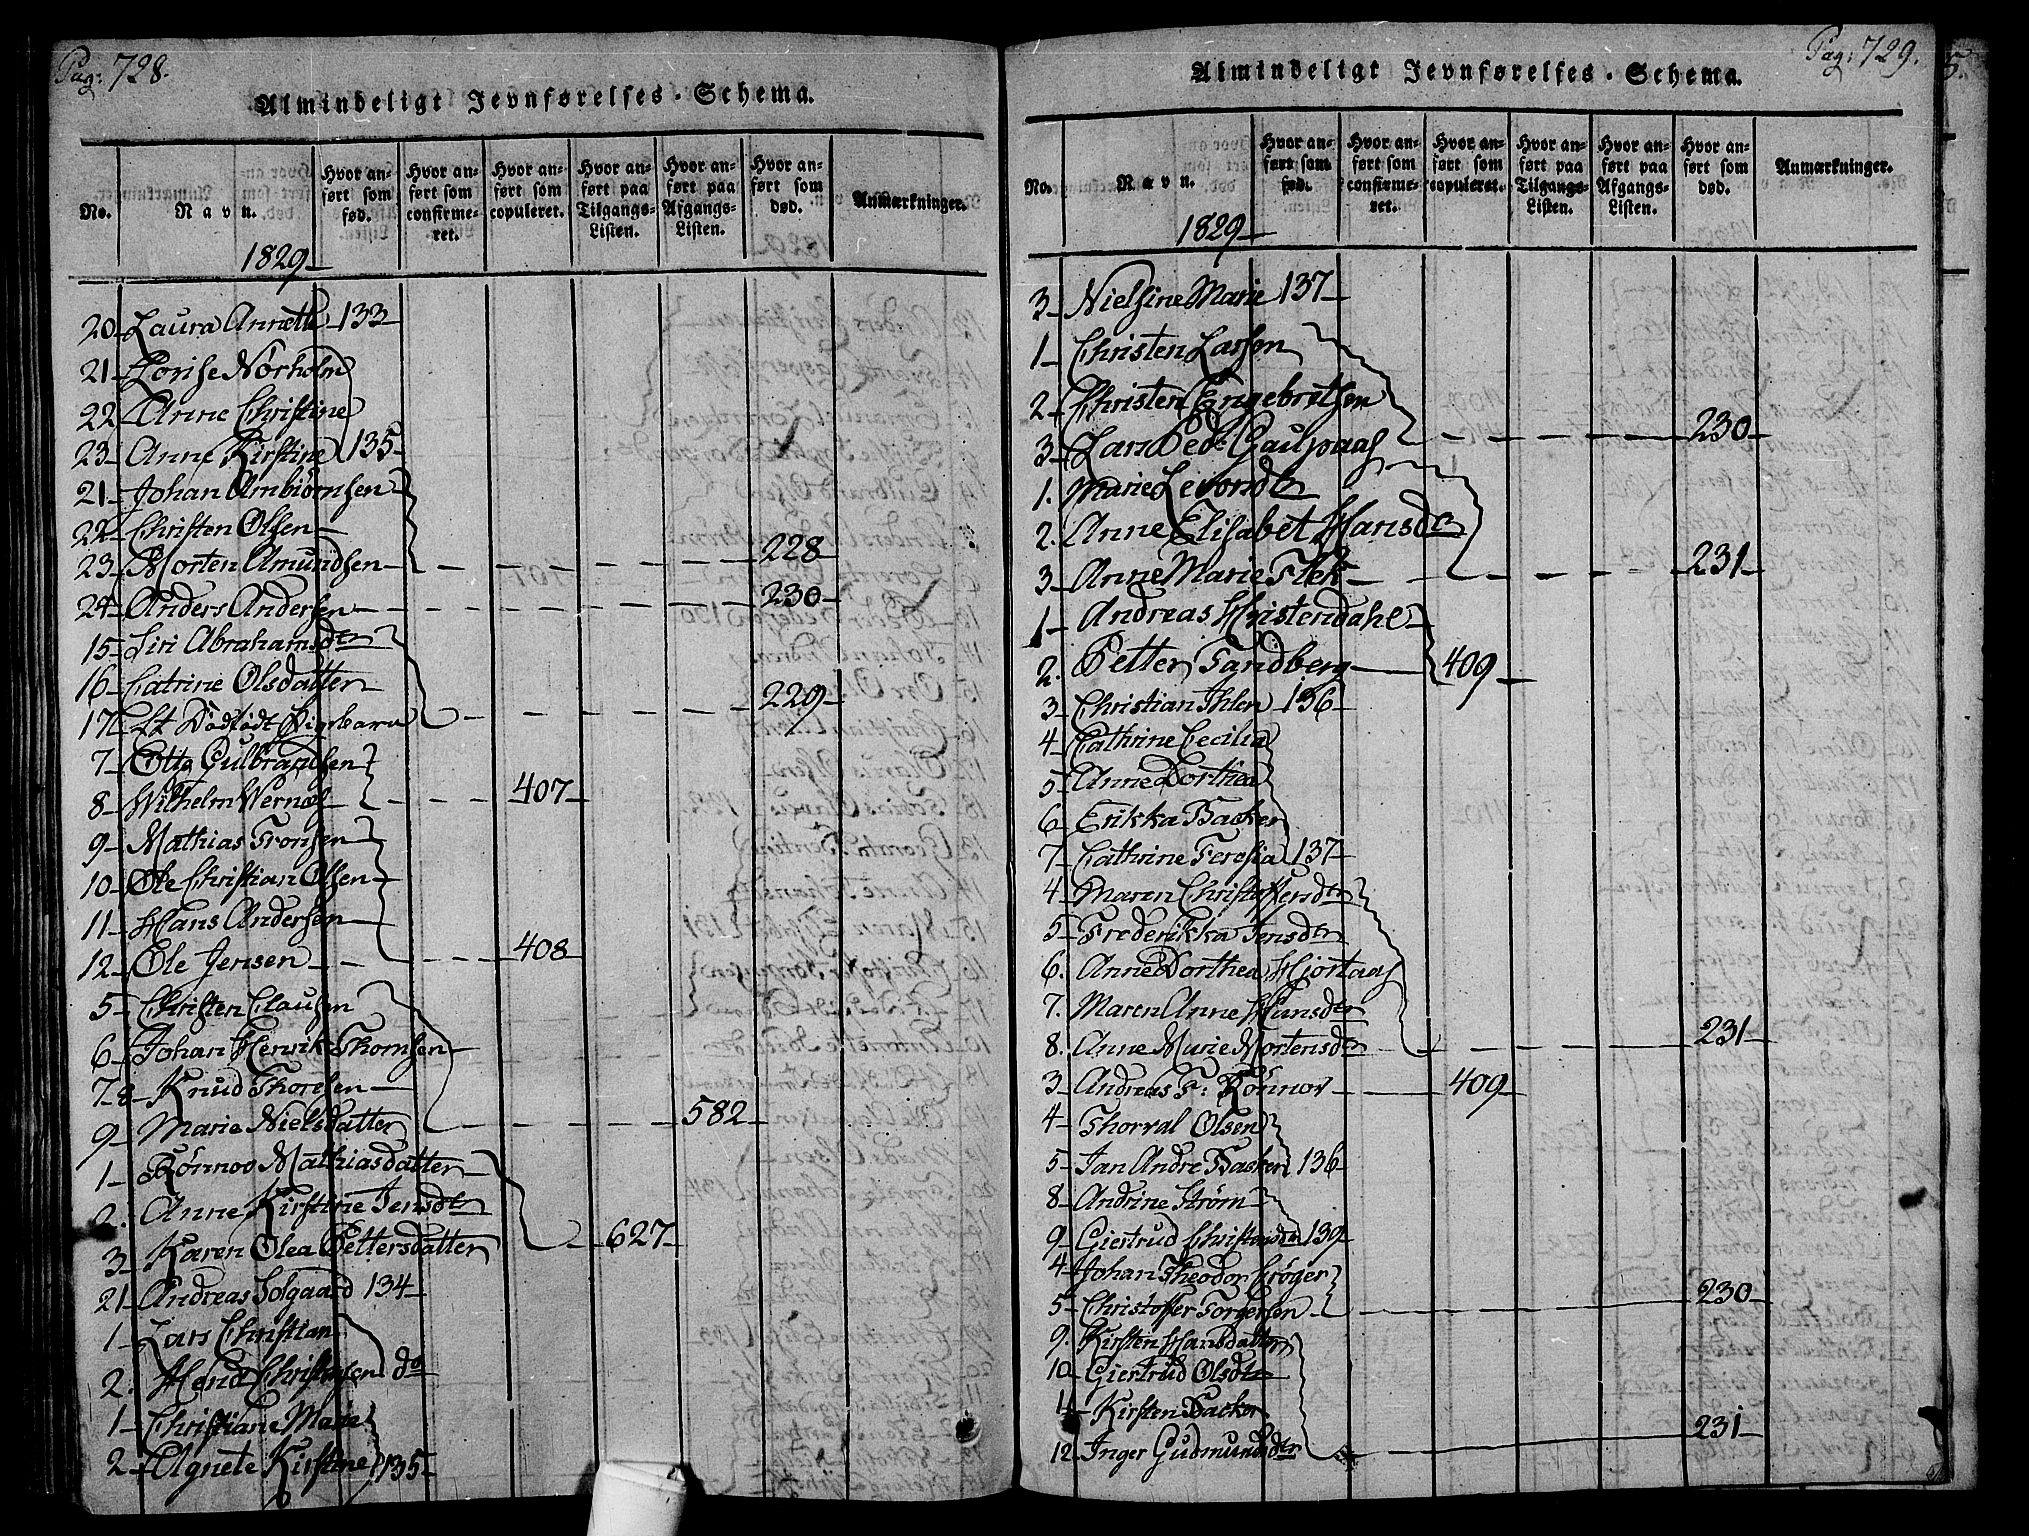 Pag: 728.
Almindeligt Jevnførelses-Schema.
No.
Navn.
Hvor an-
ført som
fød.
Hvor an-
ført som
confirme-
ret.
Hvor an-
ført som
copuleret.
Hvor an-
ført paa
Tilgangs-
Listen.
Hvor an-
ført paa
Afgangs-
Listen.
Hvor an-
ført som
død.
Anmærkninger.
1829
20 Laura Annette 133
21 Lovise Nørholm
22 Anne Christine
23 Anne Kirstine 135
21 Johan Ambiørnsen
22 Christen Olsen
23 Morten Amundsen 228
24 Anders Andersen 230
15 Siri Abrahamsdtr
16 Catrine Olsdatter
17 Et Dødfødt Pigebarn 229
7 Otto Gulbrandsen
8 Wilhelm Wernøe 407
9 Mathias Tronsen
10 Ole Christian Olsen
11 Hans Andersen
12 Ole Jensen 408
5 Christen Clausen
6 Johan Henrik Thomsen
7-8 Knud Thoresen
9 Marie Nielsdatter 582
1 Rönnov Mathiasdatter
2. Anne Kirstine Jensdtr
3 Karen Olea Pettersdatter 627
21 Andreas Solgaard 134
1 Lars Christian
2. Christensen do
1 Christiane Marie
2 Agnete Kirstine 135
Pag: 729.
Almindeligt Jevnførelses-Schema.
No.
Navn.
Hvor an-
ført som
fød.
Hvor an-
ført som
confirme-
ret.
Hvor an-
ført som
copuleret.
Hvor an-
ført paa
Tilgangs-
Listen.
Hvor an-
ført paa
Afgangs-
Listen.
Hvor an-
ført som
død.
Anmærkninger.
1829
3 Nielsine Marie 137
1 Christen Larsen
2 Christen Engebretsen
3 Lars Ped: Gaulpaas 230
1. Marie Levorsdtr
2. Anne Elisabet Hansdtr
3 Anne Marie Flek 231
1 Andreas Christendahl
2. Petter Sandberg 409
3 Christian Ihlen 136
4 Cathrine Cecilia
5 Anne Dorthea
6 Erikka Backer
7 Cathrine Teresia 137
4 Maren Christoffersdtr
5 Frederikka Jensdtr
6. Anne Dorthea Hjortaas
7. Maren Anne Hansdtr
8. Anne Marie Mortensdtr 231
3 Andreas T: Rönnov 409
4 Thorval Olsen
5 Jan Andre Backer 136
8 Andrine Strøm
9 Giertrud Christensdtr 139
4 Johan Theodor Crøger
5 Christoffer Torgersen 230
9. Kirsten Hansdatter
10 Giertrud Olsdtr
11 Kirsten Backer
12 Inger Gudmundsdtr 231